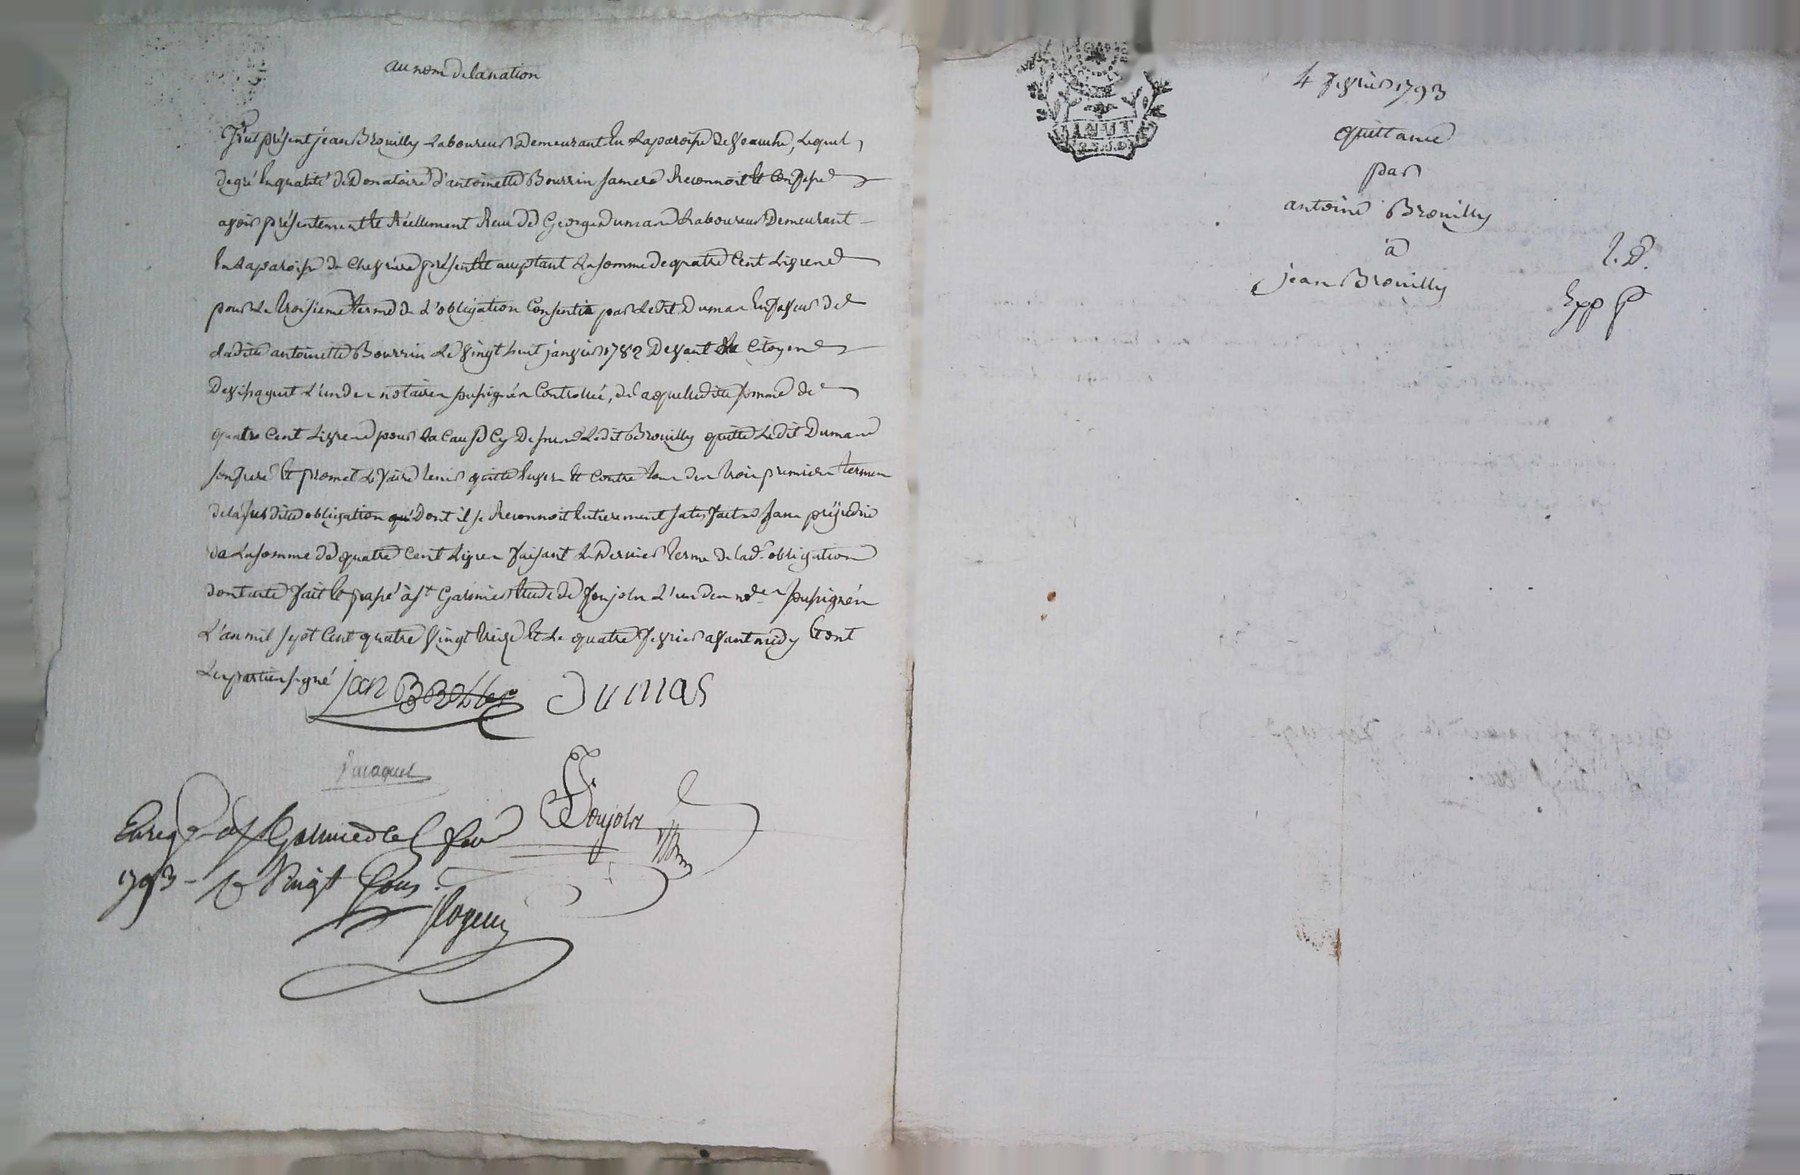 au nom de la nation
Fut présent jean Brouilly Laboureur Demeurant En La paroisse de Lequel
degré En qualité de Donataire d'antoinette Bourrin sa mere Reconnoit Et Confesse
avoir présentement Et Réellement Reçu de George Dumas Laboureur Demeurant
En La paroisse de Chevrieres présent Et acceptant La somme de quatre Cent Livres
pour Le troisieme terme de L'obligation Consentie par Ledit Dumas En faveur de
Ladite antoinette Bourrin Le vingt huit janvier 1782 Devant Citoyen
L'un des notaires soussignés Controllée, de laquelle dite somme de
quatre Cent Livres pour La Cause Cy Dessus Ledit Brouilly quitte Ledit Dumas
Et promet Le faire tenir quitte Envers Et Contre tous des trois premiers termes
de la susdite obligation Dont il se Reconnoit Entierement satisfait sans préjudice
de La somme de quatre Cent Livres faisant Le Dernier terme de lad. obligation
dont acte fait Et passé à St Galmier Etude de Ponjoln L'un des nores soussignés
L'an mil sept Cent quatre vingt treize Et Le quatre fevrier avant midy Et ont
Les parties signé jan Dumas
Enreg. a St Galmier le fev
1793 - Rx vingt sous.
4 fevrier 1793
quittance
par
antoine Brouilly
à
jean Brouilly
Exp